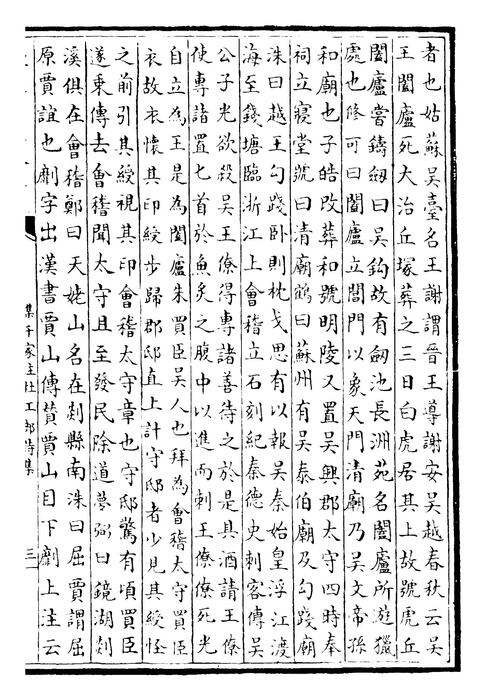 者也姑蘇吳臺名王謝謂晉王導謝安吳越春秋云吳
王闔廬死大治丘塚葬之三日白虎居其上故號虎丘
闔廬嘗鑄劒曰吳鈎故有劒池長洲苑名闔廬所遊獵
處也修可曰闔廬立閶門以象天門清廟乃吳文帝孫
和廟也子皓改葬和號明陵又置吳興郡太守四時奉
祠立寢堂號曰清廟鶴曰蘇州有吳泰伯廟及勾踐廟
洙曰越王勾踐卧則枕戈思有以報吳秦始皇浮江渡
海至錢塘臨浙江上會稽立石刻紀秦德史刺客傳吳
公子光欲殺吳王僚得專諸善待之於是具酒請王僚
使專諸置匕首於魚炙之腹中以進而刺王僚僚死光
自立為王是為闔廬朱買臣吳人也拜為會稽太守買臣
衣故衣懷其印綬步歸郡邸直上計守邸者少見其綬怪
之前引其綬視其印會稽太守章也守邸驚有頃買臣
遂乘傳去會稽聞太守且至發民除道夢弼曰鏡湖剡
溪俱在會稽鄭曰天姥山名在剡縣南洙曰屈賈謂屈
原賈誼也劘字出漢書賈山傳贊賈山自下劘上注云
集千家註杜工部詩集
三